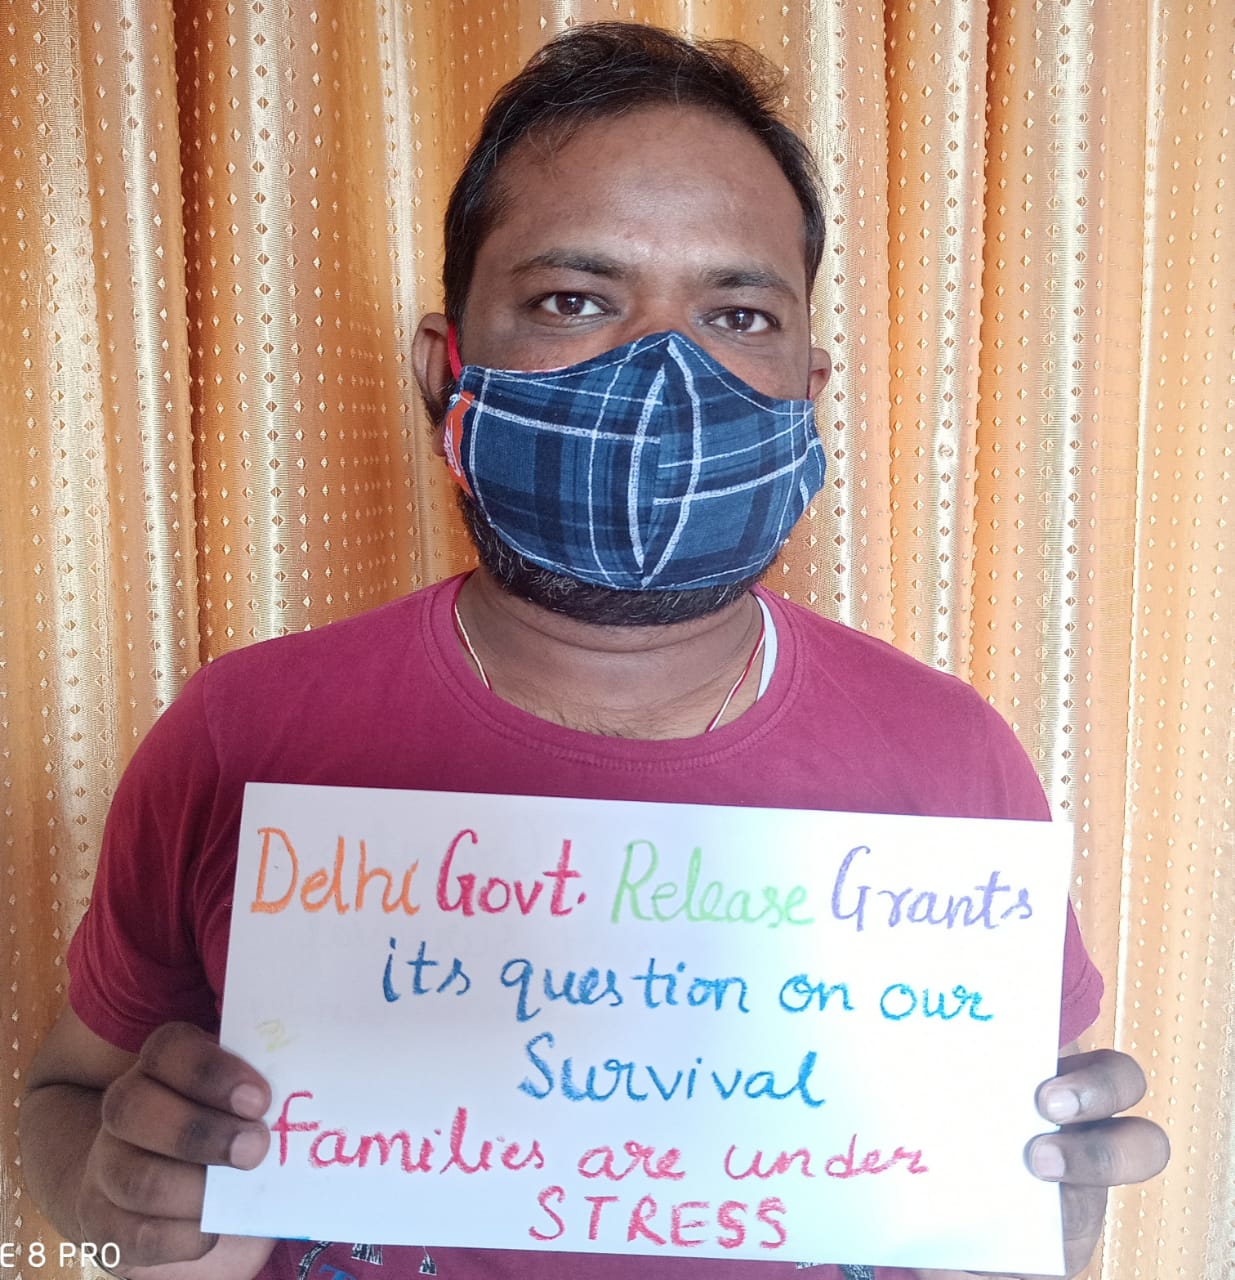 Delhi Govt. Release Grants
its question on our
Survival
families are under
STRESS
E 8 PRO